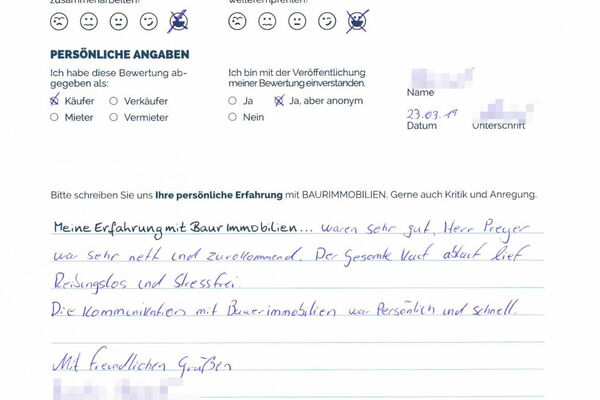 zusammenarbeiten? weiterempfehlen?
PERSÖNLICHE ANGABEN
Ich habe diese Bewertung ab- Ich bin mit der Veröffentlichung
gegeben als: meiner Bewertung einverstanden.
Käufer Verkäufer Ja Ja, aber anonym
Mieter Vermieter Nein
Name
23.03.19
Datum Unterschrift
Bitte schreiben Sie uns Ihre persönliche Erfahrung mit BAURIMMOBILIEN. Gerne auch Kritik und Anregung.
Meine Erfahrung mit Baur Immobilien... waren sehr gut, Herr Preyer
war sehr nett und zurvorkommend. Der Gesamte Kauf ablauf lief
Reibungslos und Stressfrei.
Die Kommunikation mit Bauerimmobilien war Persönlich und schnell.
Mit freundlichen Grüßen